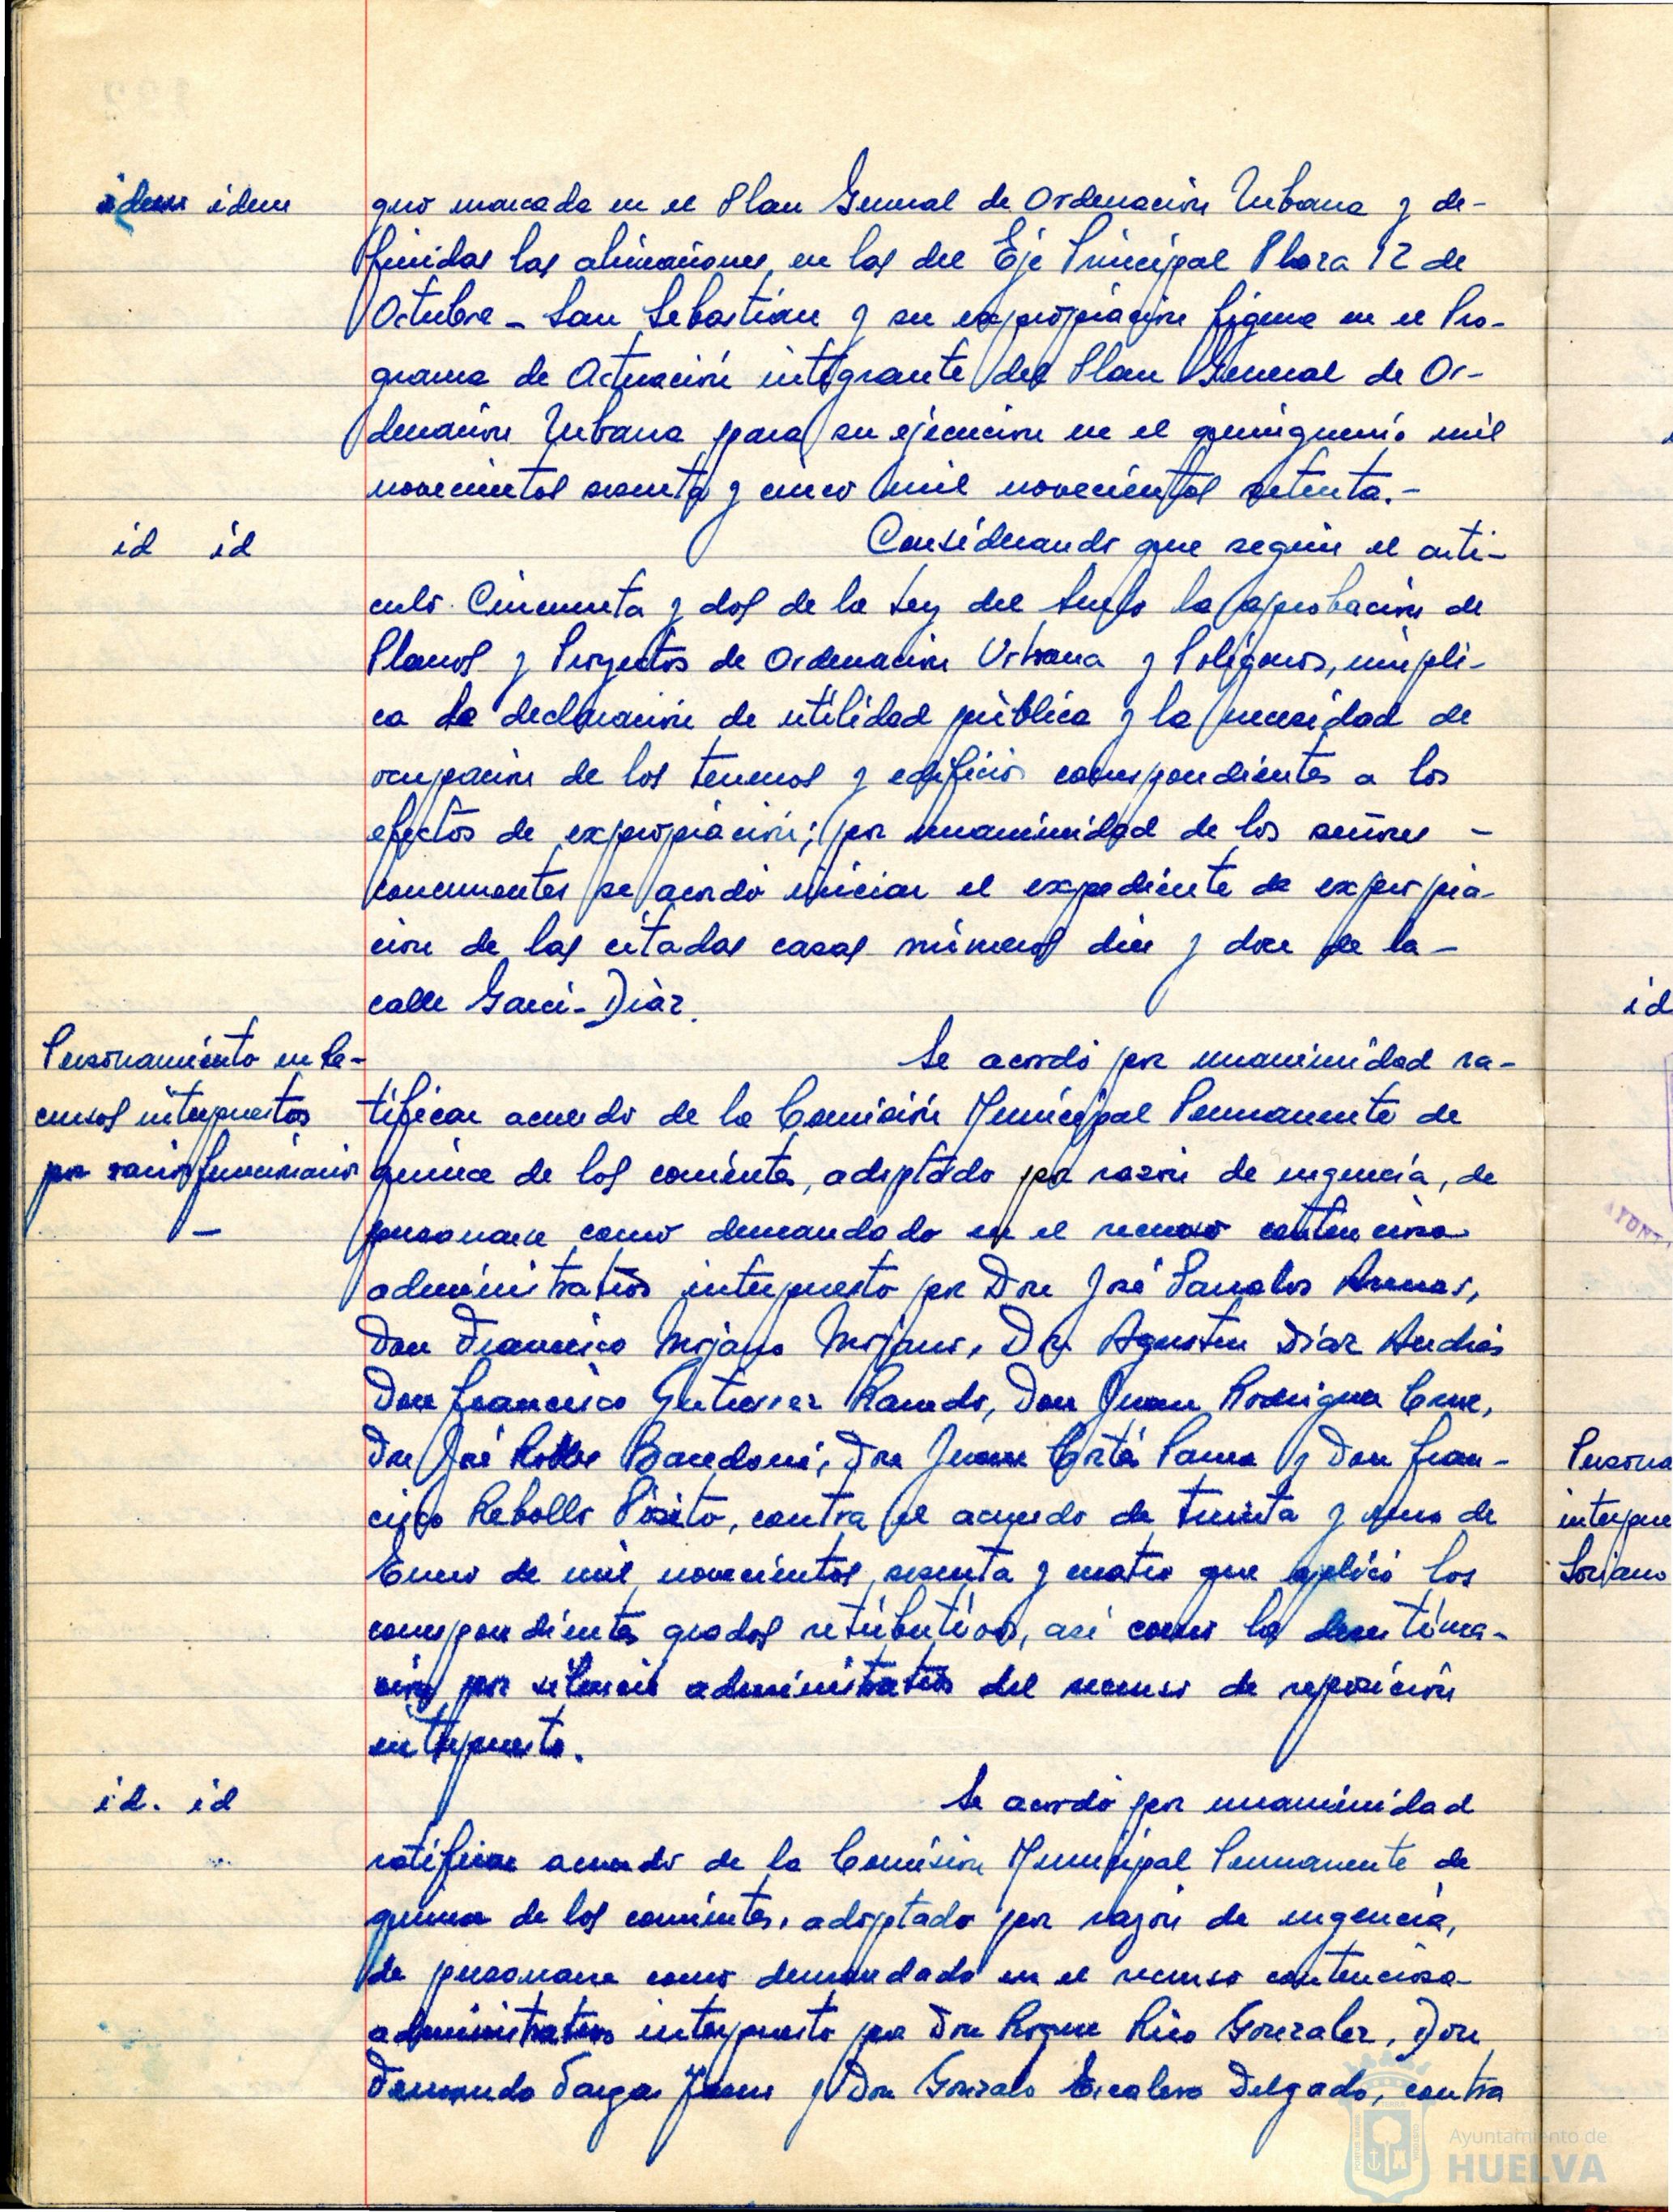 idem idem
gno marcada en el Plan General de Ordenación Urbana y de-
finidas las alineaciones en las del Eje Principal Plaza 12 de
Octubre - San Sebastián y su expropiación figura en el Pro-
grama de Actuación integrante del Plan General de Or-
denación Urbana para su ejecución en el quinquenio mil
novecientos sesenta y cinco mil novecientos setenta.-
id id
Considerando que según el arti-
culo Cincuenta y dos de la Ley del Suelo la aprobación de
Planos y Proyectos de Ordenación Urbana y Poligonos, impli-
ca la declaración de utilidad pública y la necesidad de
ocupación de los terrenos y edificios correspondientes a los
efectos de expropiación; por unanimidad de los señores -
concurrentes se acordó iniciar el expediente de expropia-
ción de las citadas casas números diez y doce de la -
calle Garci-Díaz.
Personamiento en Re-
cursos interpuestos
por varios funcionarios
-
Se acordó por unanimidad ra-
tificar acuerdo de la Comisión Municipal Permanente de
quince de los corrientes, adoptado por razón de urgencia, de
personarse como demandado en el recurso contencioso
administrativo interpuesto por Don José Parrales Arenas,
Don Francisco Mojano Mojano, Don Agustin Díaz Andrés
Don Francisco Gutierrez Ranedo, Don Juan Rodriguez Cruz,
Don José Robles Baredoni, Don Juan Cortés Parra y Don Fran-
cisco Rebollo Pixito, contra el acuerdo de treinta y uno de
Enero de mil novecientos sesenta y cuatro que aplicó los
correspondientes grados retributivos, así como la desestima-
ción por silencio administrativo del recurso de reposición
interpuesto.
id. id
Se acordó por unanimidad
ratificar acuerdo de la Comisión Municipal Permanente de
quince de los corrientes, adoptado por razón de urgencia,
de personarse como demandado en el recurso contencioso
administrativo interpuesto por Don Roque Rico Gonzalez, Don
Fernando Vargas y Don Gonzalo Escalera Delgado, contra
id
Persona
interpue
Soriano
AYUNT
Ayuntamiento de
HUELVA